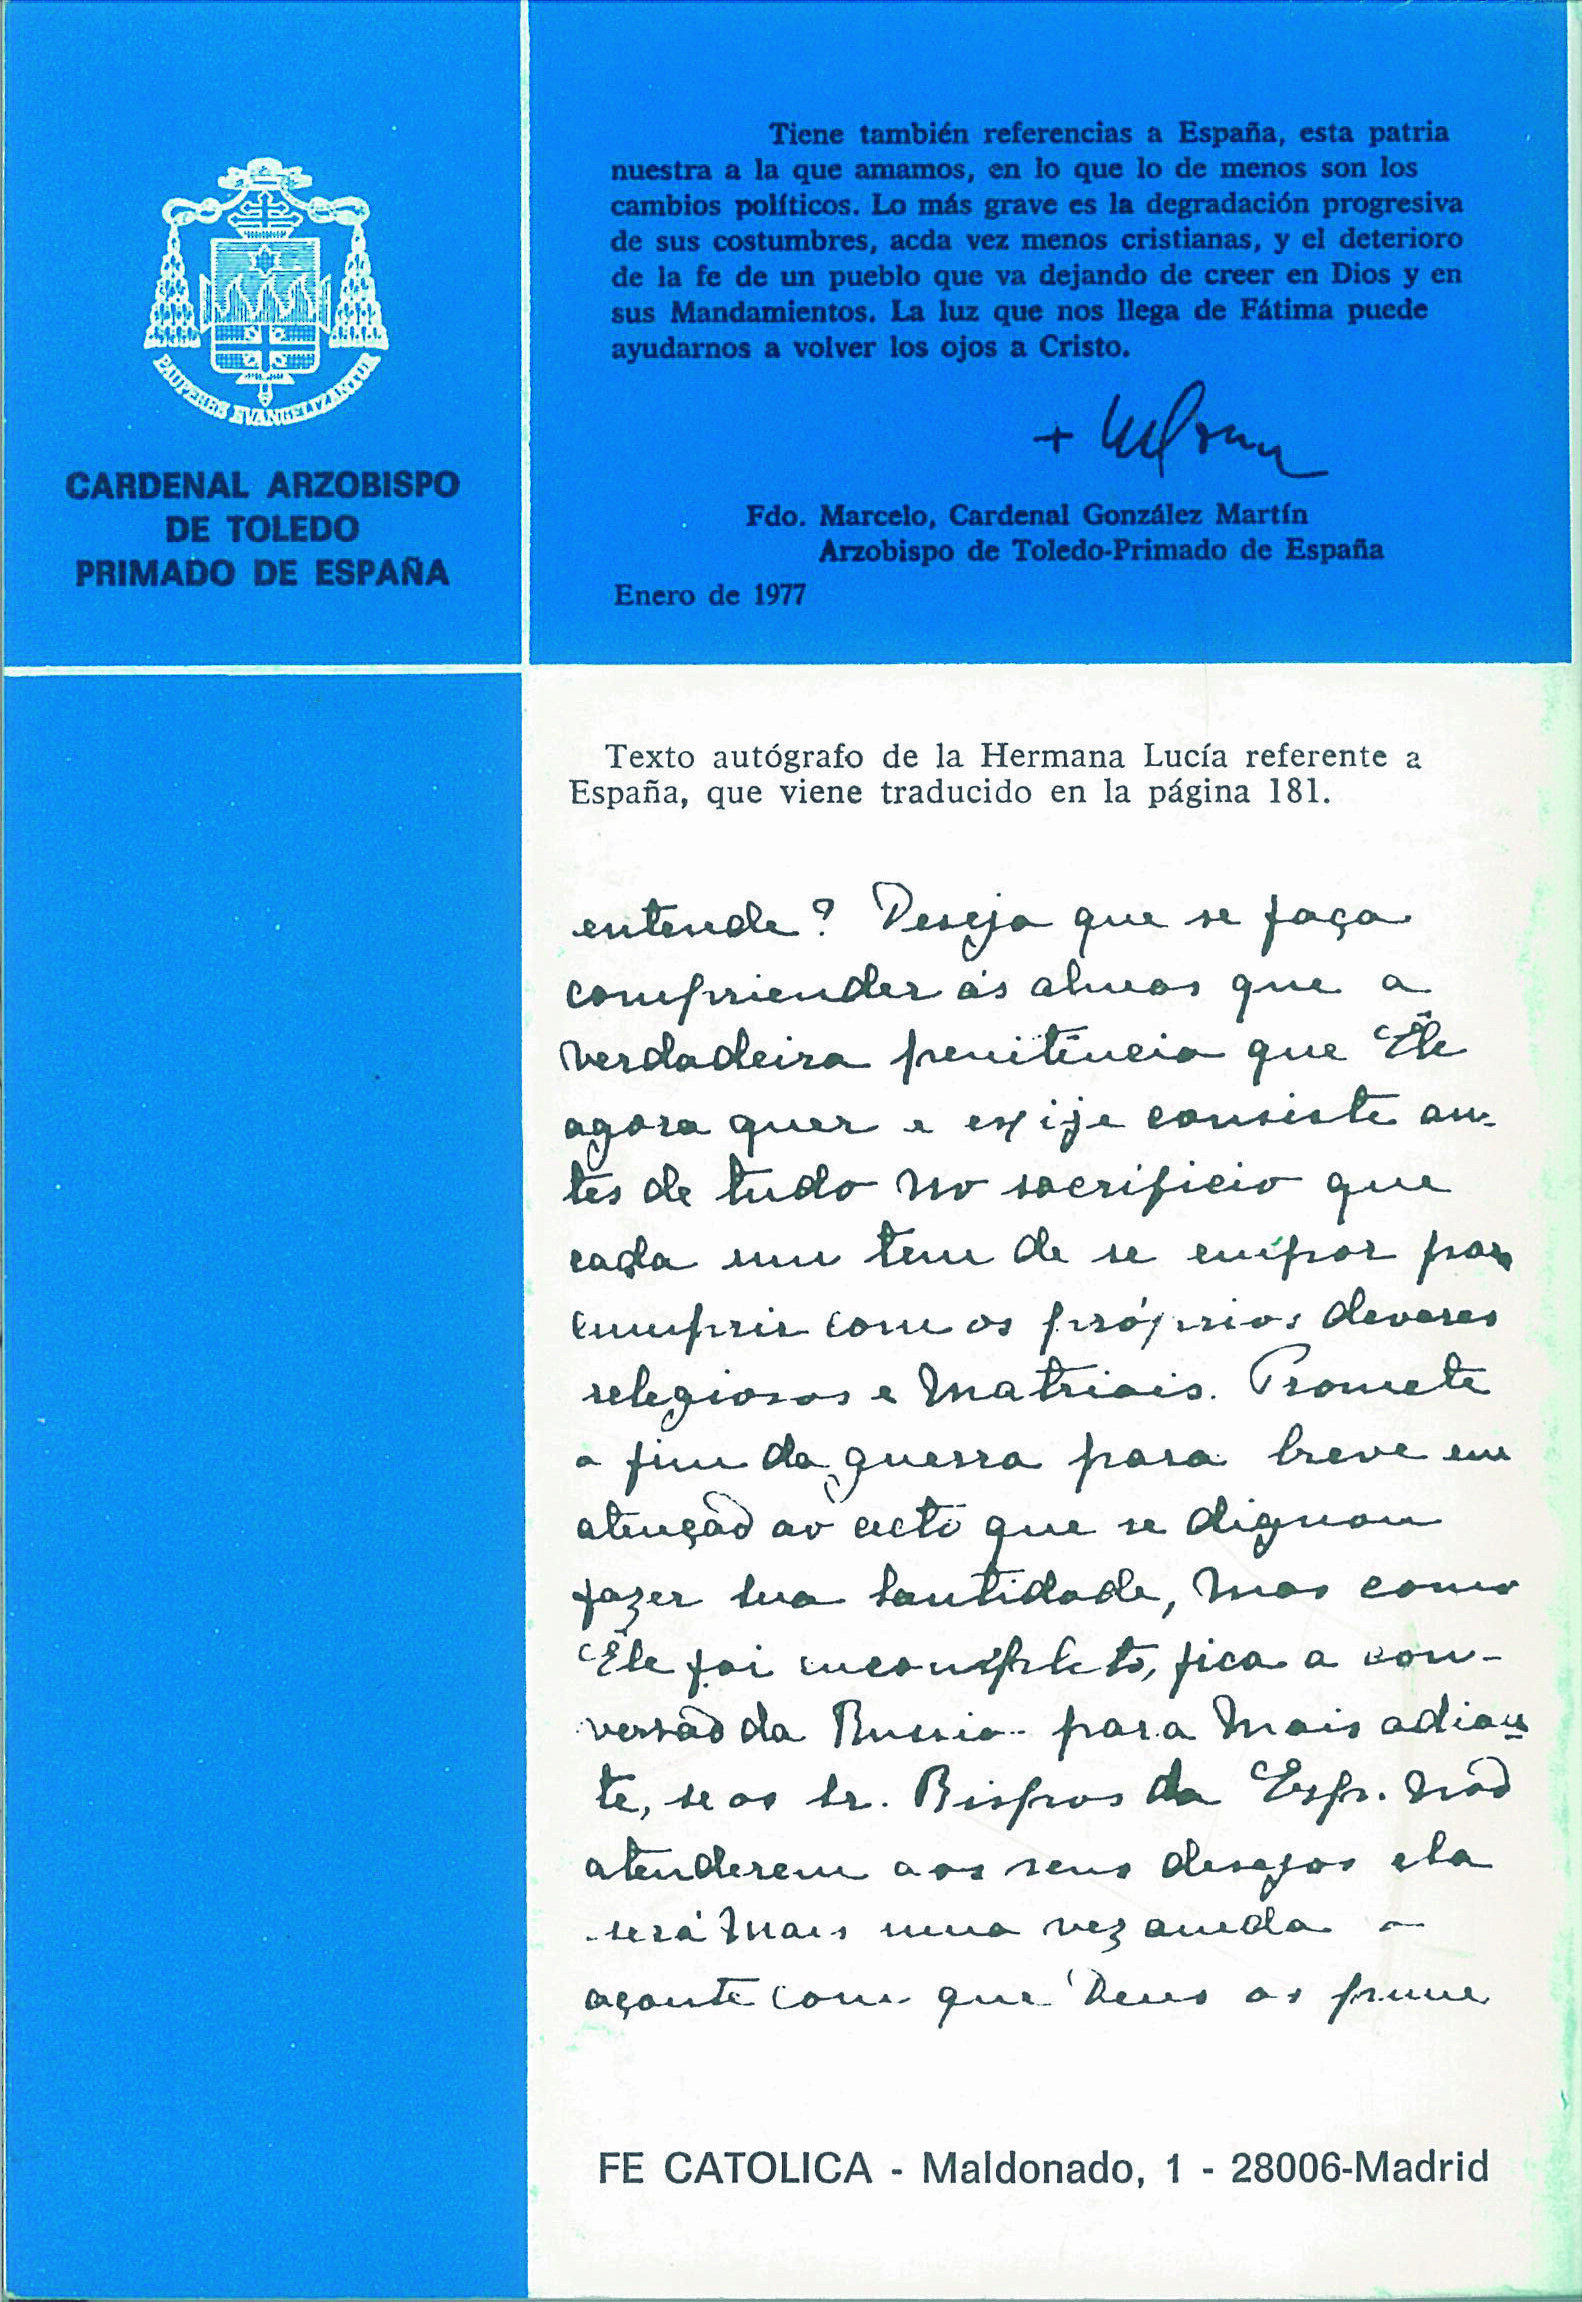 PAUPERES EVANGELIZANTUR
CARDENAL ARZOBISPO
DE TOLEDO
PRIMADO DE ESPAÑA
Tiene también referencias a España, esta patria
nuestra a la que amamos, en lo que lo de menos son los
cambios políticos. Lo más grave es la degradación progresiva
de sus costumbres, acda vez menos cristianas, y el deterioro
de la fe de un pueblo que va dejando de creer en Dios y en
sus Mandamientos. La luz que nos llega de Fátima puede
ayudarnos a volver los ojos a Cristo.
Fdo. Marcelo, Cardenal González Martín
Arzobispo de Toledo-Primado de España
Enero de 1977
Texto autógrafo de la Hermana Lucía referente a
España, que viene traducido en la página 181.
entende? Deseja que se faça
compriender ás almas que a
verdadeira penitência que Êle
agora quer e exije consiste an-
tes de tudo no sacrificio que
cada um tem de se empor para
cumprir com os próprios deveres
relegiosos e matriais. Promete
o fim da guerra para breve em
atenção ao acto que se dignou
fazer sua Santidade, mas como
Êle foi incompleto, fica a con-
versão da Russia para mais adian-
te, se os sr. Bispos da Esp. não
atenderem aos seus desejos ela
será mais uma vez aneda o
açoute com que Deus os pune
FE CATOLICA - Maldonado, 1 - 28006-Madrid